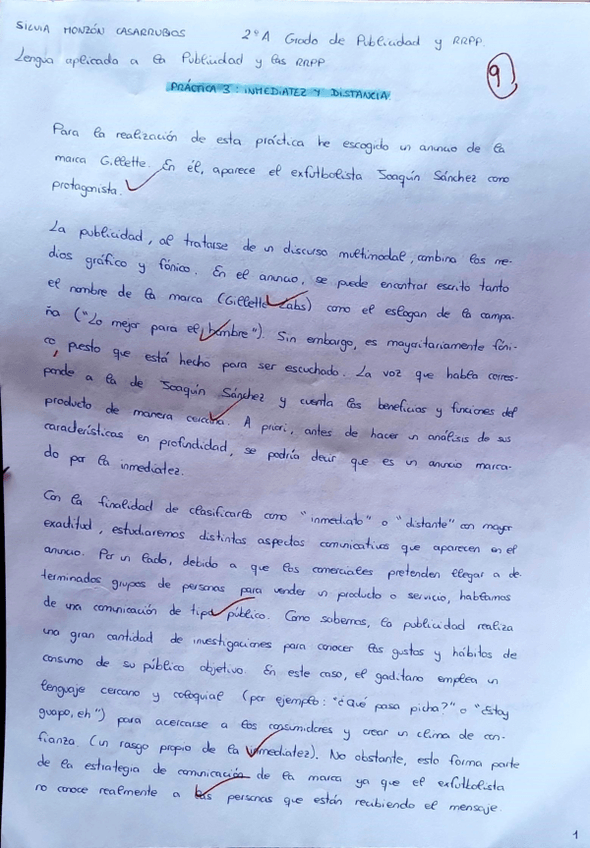 SILVIA MONZÓN CASARRUBIOS 2ºA Grado de Publicidad y RRPP.
Lengua aplicada a la Publicidad y las RRPP
9
PRÁCTICA 3: INMEDIATEZ Y DISTANCIA
Para la realización de esta práctica he escogido un anuncio de la
marca Gillette. En él, aparece el exfutbolista Joaquín Sánchez como
protagonista.
La publicidad, al tratarse de un discurso multimodal, combina los me-
dios gráfico y fónico. En el anuncio, se puede encontrar escrito tanto
el nombre de la marca (Gillette Labs) como el eslogan de la campa-
ña ("Lo mejor para el hombre"). Sin embargo, es mayoritariamente fóni-
co, puesto que está hecho para ser escuchado. La voz que habla corres-
ponde a la de Joaquín Sánchez y cuenta los beneficios y funciones del
producto de manera cercana. A priori, antes de hacer un análisis de sus
características en profundidad, se podría decir que es un anuncio marca-
do por la inmediatez.
Con la finalidad de clasificarlo como "inmediato" o "distante" con mayor
exactitud, estudiaremos distintos aspectos comunicativos que aparecen en el
anuncio. Por un lado, debido a que los comerciales pretenden llegar a de-
terminados grupos de personas para vender un producto o servicio, hablamos
de una comunicación de tipo público. Como sabemos, la publicidad realiza
una gran cantidad de investigaciones para conocer los gustos y hábitos de
consumo de su público objetivo. En este caso, el gaditano emplea un
lenguaje cercano y coloquial (por ejemplo: "¿Qué pasa picha?" o "Estoy
guapo, eh") para acercarse a los consumidores y crear un clima de con-
fianza (un rasgo propio de la inmediatez). No obstante, esto forma parte
de la estrategia de comunicación de la marca ya que el exfutbolista
no conoce realmente a las personas que están recibiendo el mensaje.
1